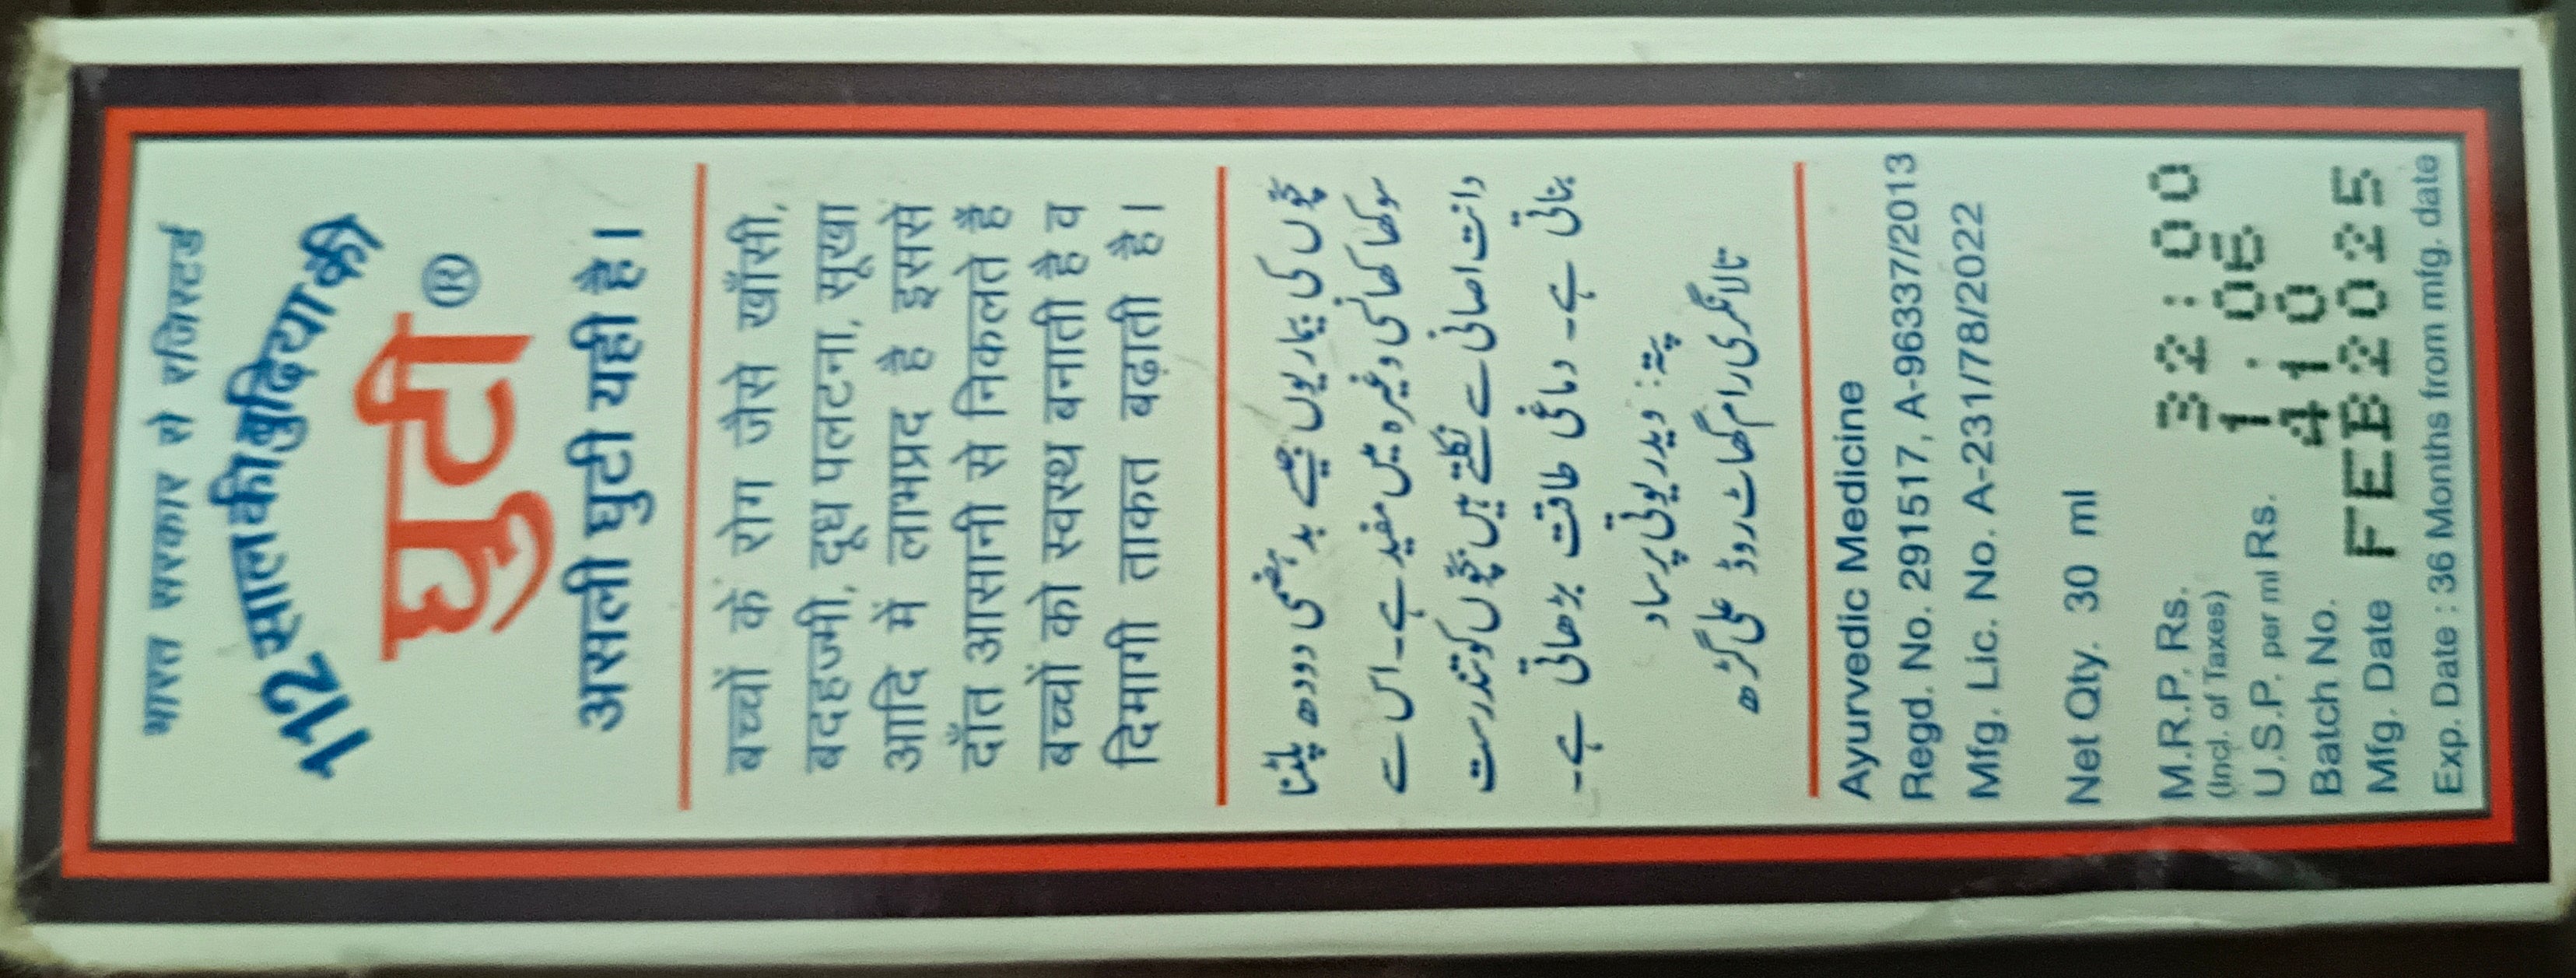 भारत सरकार से रजिस्टर्ड
112 साल की बुढ़िया की
घुटी ®
असली घुटी यही है।
बच्चों के रोग जैसे खाँसी,
बदहज्मी, दूध पलटना, सूखा
आदि में लाभप्रद है इससे
दाँत आसानी से निकलते हैं
बच्चों को स्वस्थ बनाती है व
दिमागी ताकत बढ़ाती है।
بچّوں کی بیماریوں جیسے بدہضمی دودھ پلٹنا
سوکھا کھانسی وغیرہ میں مفید ہے۔ اس سے
دانت اصانی سے نکلتے ہیں بچّوں کو تندرست
بناتی ہے۔ دماغی طاقت بڑھاتی ہے۔
پتہ: ویدر یوتی پرساد
تالانگری رام گھاٹ روڈ علی گڑھ
Ayurvedic Medicine
Regd. No. 291517, A-96337/2013
Mfg. Lic. No. A-231/78/2022
Net Qty. 30 ml
M.R.P. Rs. 32:00
(Incl. of Taxes)
U.S.P. per ml Rs. 1.06
Batch No. 410
Mfg. Date FEB2025
Exp. Date : 36 Months from mfg. date